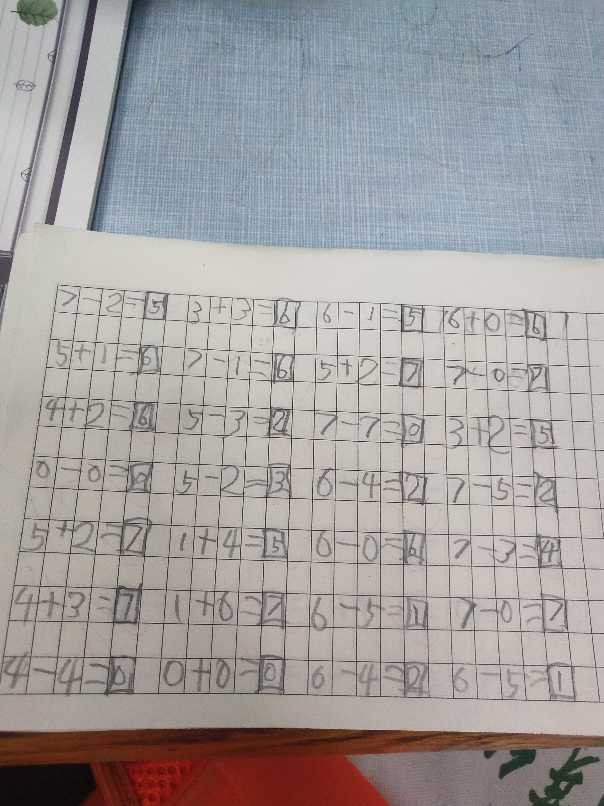 7-2=5 3+3=6 6-1=5 6+0=6
5+1=6 7-1=6 5+2=7 7-0=7
4+2=6 5-3=2 7-7=0 3+2=5
0-0=0 5-2=3 6-4=2 7-5=2
5+2=7 1+4=5 6-0=6 7-3=4
4+3=7 1+6=7 6-5=1 7-0=7
4-4=0 0+0=0 6-4=2 6-5=1